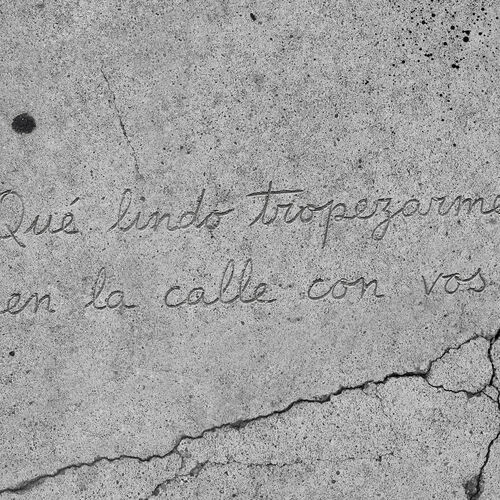 Qué lindo tropezarme
en la calle con vos